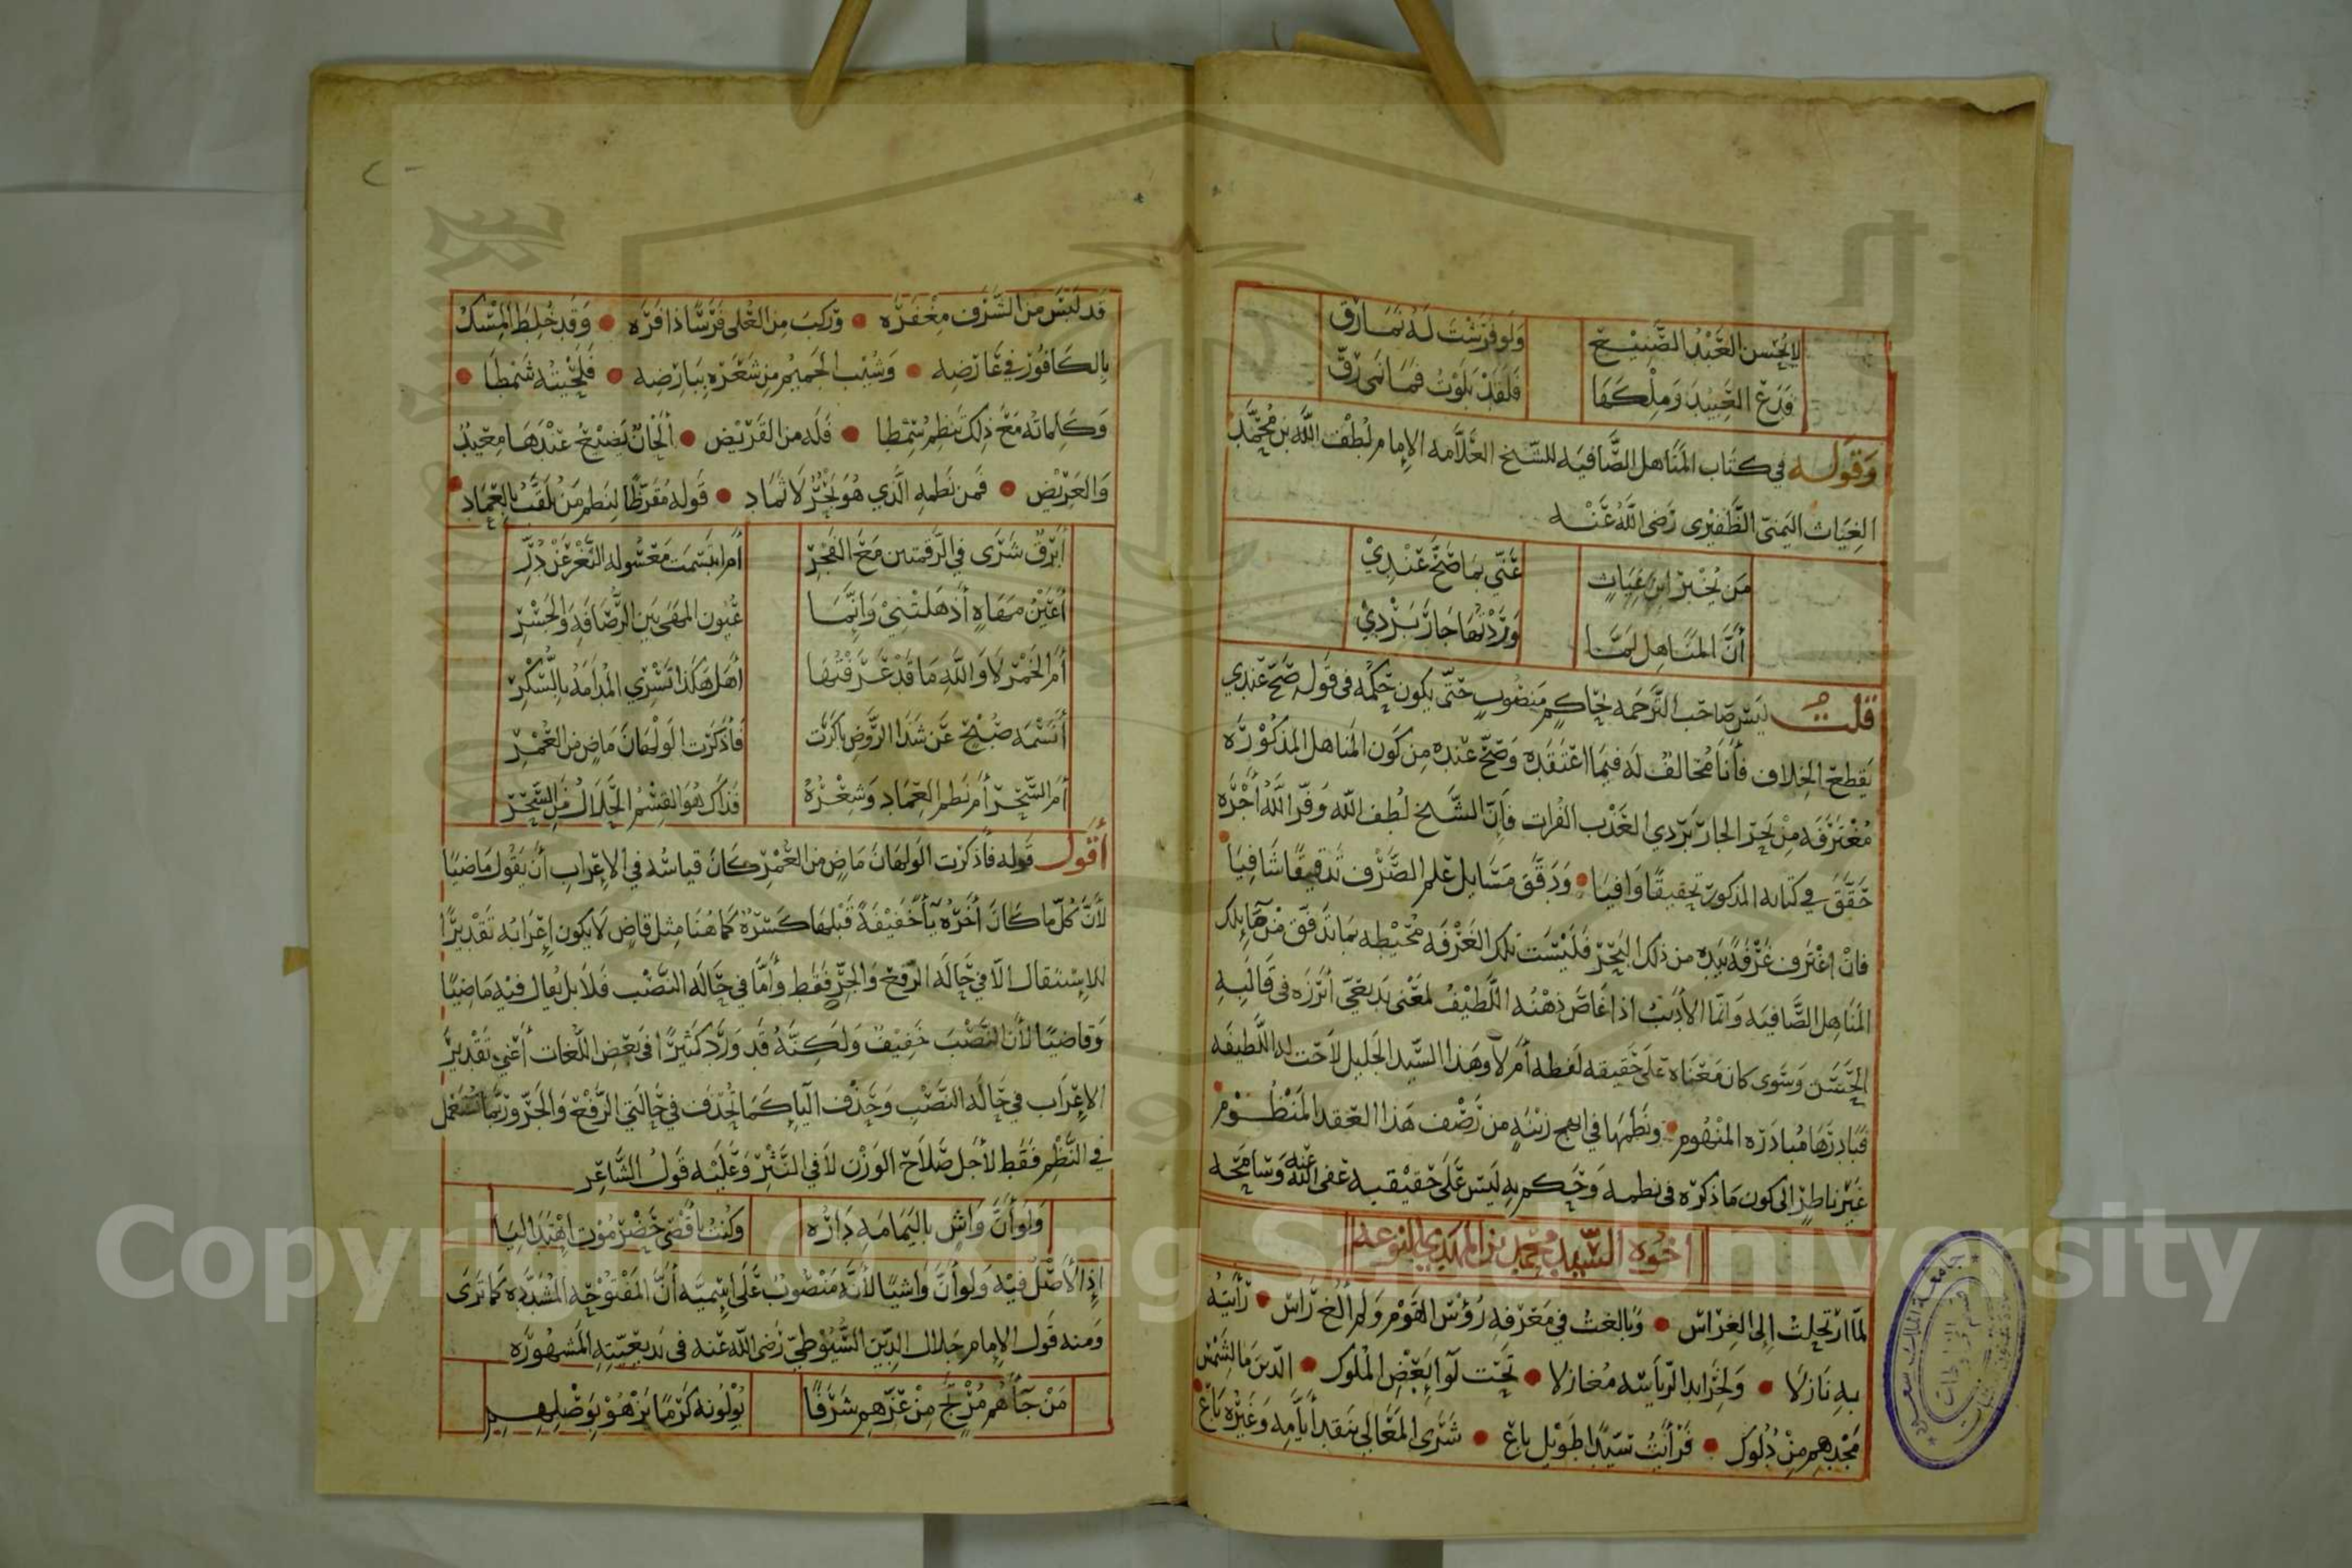 لا يحسن العبد الصنيع ولو فرشت له نمارق
فدع العبيد وملكها فلقد بلوت فما نمى رق
وقوله في كتاب المناهل الصافيه للشيخ العلامه الامام لطف الله بن محمد
الغياث اليمني الظفيري رضي الله عنه
من يخبر ابن غياث عني بما صح عندي
أن المناهل لما وردتها جار بردي
قلت ليس صاحب الترجمه بحاكم منصوب حتى يكون حكمه في قوله صح عندي
يقطع الخلاف فأنا مخالف له فيما اعتقده وصح عنده من كون المناهل المذكوره
مغترفه من بحر الجار بردي العذب الفرات فإن الشيخ لطف الله وفر الله أجره
حقق في كتابه المذكور تحقيقا وافيا ودقق مسايل علم الصرف تدقيقا شافيا
فان اغترف غرفة بيده من ذلك البحر فليست تلك الغرفه محيطه بما تدفق من تلك
المناهل الصافيه وانما الأديب اذا غاص ذهنه اللطيف لمعنى بديعي أبرزه في قالبه
الحسن وسوى كان معناه على حقيقه لفظه أم لا وهذا السيد الجليل لاحت له اللطيفه
فبادرها مبادرة المنهوم ونظمها في ابهج زينه من رصف هذا العقد المنظوم
غير ناظر الى كون ما ذكره في نظمه وحكم به ليس على حقيقيه عفى الله عنه وسامحه
اخوه السيد محمد بن المهدي النوعه
لما ارتحلت إلى الغراس وبالغت في معرفه رؤس القوم ولم ألغ راس رأيته
به نازلا ولخرايد الرياسه مغازلا تحت لوا بعض الملوك الذين ما لشمس
مجدهم من دلوك فرأيت سيدا طويل باع شرى المعالي بنقد أيامه وغيره باع
قد لبس من الشرف مغفره وركب من العلى فرسا ذا فره وقد خلط المسك
بالكافور في عارضه وشيب الجميم من شعره ببارضه فلحيته شمطا
وكلماته مع ذلك تنظم سمطا فله من القريض ألحان يضيع عندها معبد
والغريض فمن نظمه الذي هو بحر لا ثماد قوله مقرظا لنظم من يلقب بالعماد
أبرق شرى في الرقمتين مع الفجر أم ابتسمت معسوله الثغر عن در
أعين مهاة أذهلتني وانما عيون المهى بين الرصافه والجسر
أم الخمر لا والله ما قد عرفتها أهل هكذا تسري المدامه بالسكر
أنسمه صبح عن شذا الروض باكرت فأذكرت الولهان ماض من العمر
أم السحر أم نظم العماد وشعره فذاك هو القسم الحلال من السحر
أقول قوله فأذكرت الولهان ماض من العمر كان قياسه في الإعراب أن يقول ماضيا
لأن كل ما كان أخره يآ خفيفة قبلها كسرة كما هنا مثل قاض لا يكون إعرابه تقديرا
للاستثقال الا في حاله الرفع والجر فقط وأما في حاله النصب فلا بل يقال فيه ماضيا
وقاضيا لأن النصب خفيف ولكنه قد ورد كثيرا في بعض اللغات أعني تقدير
الإعراب في حاله النصب وحذف اليا كما تحذف في حالتي الرفع والجر وربما تستعمل
في النظم فقط لأجل صلاح الوزن لا في النثر وعليه قول الشاعر
ولو أن واش باليمامه داره وكنت باقصى حضرموت اهتدا ليا
إذ الأصل فيه ولو أن واشيا لأنه منصوب على إسميه أن المفتوحه المشدده كما ترى
ومنه قول الإمام جلال الدين السيوطي رضي الله عنه في بديعيته المشهوره
من جآهم مرتج من عزهم شرفا يولونه كرما يزهو بوصلهم
Copyright © King Saud University